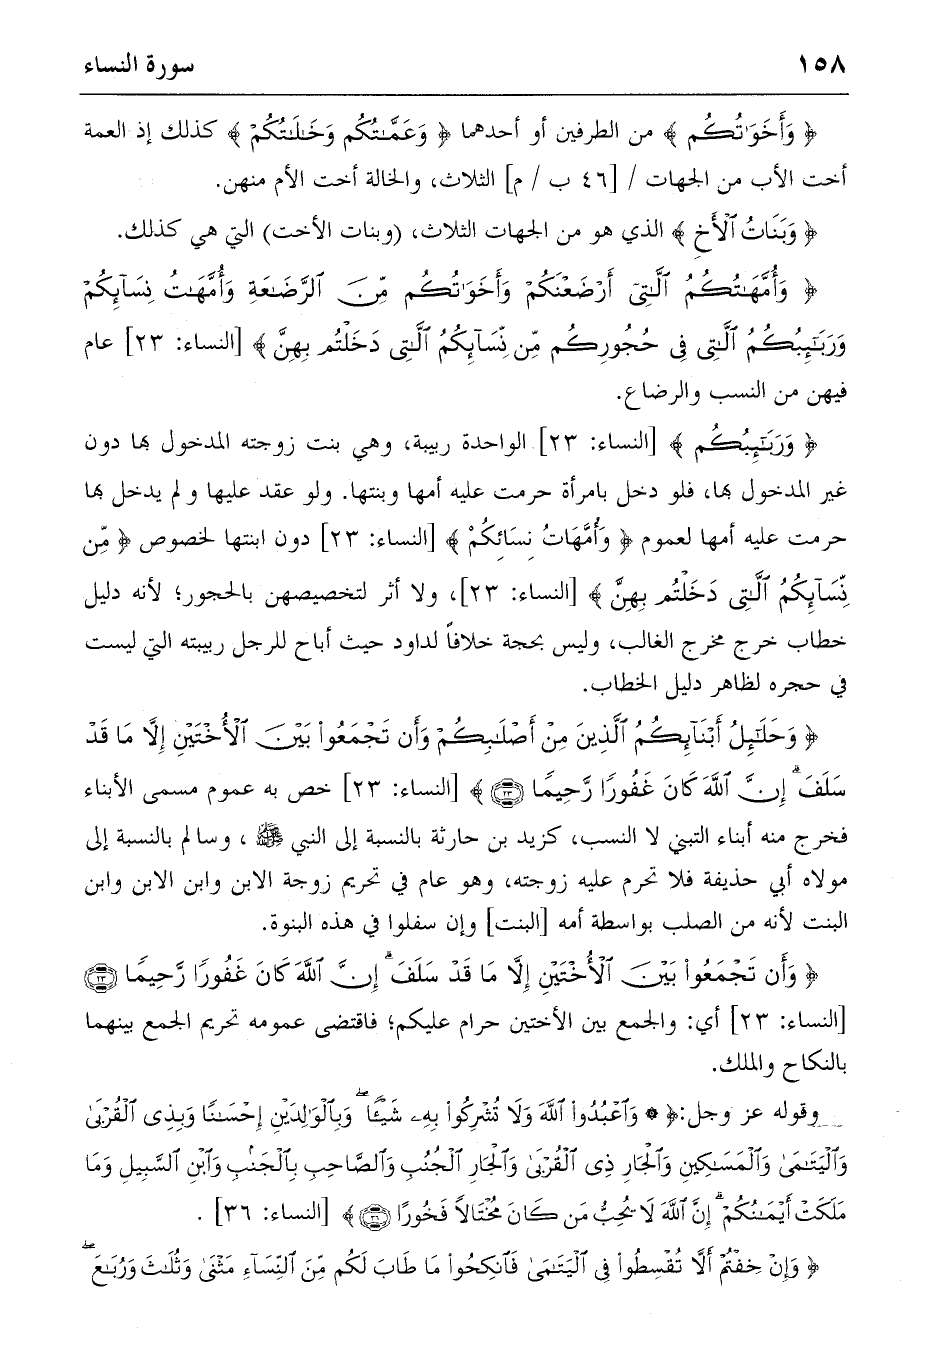 ١٥٨ سورة النساء
﴿ وَأَخَوَٰتُكُم ﴾ من الطرفين أو أحدهما ﴿ وَعَمَّـٰتُكُم وَخَـٰلَـٰتُكُمْ ﴾ كذلك إذ العمة
أخت الأب من الجهات / [٤٦ ب / م] الثلاث، والخالة أخت الأم منهن.
﴿ وَبَنَاتُ ٱلْأَخِ ﴾ الذي هو من الجهات الثلاث، (وبنات الأخت) التي هي كذلك.
﴿ وَأُمَّهَـٰتُكُمُ ٱلَّـٰتِىٓ أَرْضَعْنَكُمْ وَأَخَوَٰتُكُم مِّنَ ٱلرَّضَـٰعَةِ وَأُمَّهَـٰتُ نِسَآئِكُمْ
وَرَبَـٰٓئِبُكُمُ ٱلَّـٰتِى فِى حُجُورِكُم مِّن نِّسَآئِكُمُ ٱلَّـٰتِى دَخَلْتُم بِهِنَّ ﴾ [النساء: ٢٣] عام
فيهن من النسب والرضاع.
﴿ وَرَبَـٰٓئِبُكُم ﴾ [النساء: ٢٣] الواحدة ربيبة، وهي بنت زوجته المدخول بها دون
غير المدخول بها، فلو دخل بامرأة حرمت عليه أمها وبنتها. ولو عقد عليها و لم يدخل بها
حرمت عليه أمها لعموم ﴿ وَأُمَّهَاتُ نِسَائِكُمْ ﴾ [النساء: ٢٣] دون ابنتها لخصوص ﴿ مِّن
نِّسَآئِكُمُ ٱلَّـٰتِى دَخَلْتُم بِهِنَّ ﴾ [النساء: ٢٣]، ولا أثر لتخصيصهن بالحجور؛ لأنه دليل
خطاب خرج مخرج الغالب، وليس بحجة خلافاً لداود حيث أباح للرجل ربيبته التي ليست
في حجره لظاهر دليل الخطاب.
﴿ وَحَلَـٰٓئِلُ أَبْنَآئِكُمُ ٱلَّذِينَ مِنْ أَصْلَـٰبِكُمْ وَأَن تَجْمَعُوا۟ بَيْنَ ٱلْأُخْتَيْنِ إِلَّا مَا قَدْ
سَلَفَ ۗ إِنَّ ٱللَّهَ كَانَ غَفُورًا رَّحِيمًا ۝٢٣ ﴾ [النساء: ٢٣] خص به عموم مسمى الأبناء
فخرج منه أبناء التبني لا النسب، كزيد بن حارثة بالنسبة إلى النبي ﷺ ، وسالم بالنسبة إلى
مولاه أبي حذيفة فلا تحرم عليه زوجته، وهو عام في تحريم زوجة الابن وابن الابن وابن
البنت لأنه من الصلب بواسطة أمه [البنت] وإن سفلوا في هذه البنوة.
﴿ وَأَن تَجْمَعُوا۟ بَيْنَ ٱلْأُخْتَيْنِ إِلَّا مَا قَدْ سَلَفَ ۗ إِنَّ ٱللَّهَ كَانَ غَفُورًا رَّحِيمًا ۝٢٣
[النساء: ٢٣] أي: والجمع بين الأختين حرام عليكم؛ فاقتضى عمومه تحريم الجمع بينهما
بالنكاح والملك.
وقوله عز وجل:﴿ * وَٱعْبُدُوا۟ ٱللَّهَ وَلَا تُشْرِكُوا۟ بِهِۦ شَيْـًٔا ۖ وَبِٱلْوَٰلِدَيْنِ إِحْسَـٰنًا وَبِذِى ٱلْقُرْبَىٰ
وَٱلْيَتَـٰمَىٰ وَٱلْمَسَـٰكِينِ وَٱلْجَارِ ذِى ٱلْقُرْبَىٰ وَٱلْجَارِ ٱلْجُنُبِ وَٱلصَّاحِبِ بِٱلْجَنۢبِ وَٱبْنِ ٱلسَّبِيلِ وَمَا
مَلَكَتْ أَيْمَـٰنُكُمْ ۗ إِنَّ ٱللَّهَ لَا يُحِبُّ مَن كَانَ مُخْتَالًا فَخُورًا ۝٣٦ ﴾ [النساء: ٣٦] .
﴿ وَإِنْ خِفْتُمْ أَلَّا تُقْسِطُوا۟ فِى ٱلْيَتَـٰمَىٰ فَٱنكِحُوا۟ مَا طَابَ لَكُم مِّنَ ٱلنِّسَآءِ مَثْنَىٰ وَثُلَـٰثَ وَرُبَـٰعَ ۖ